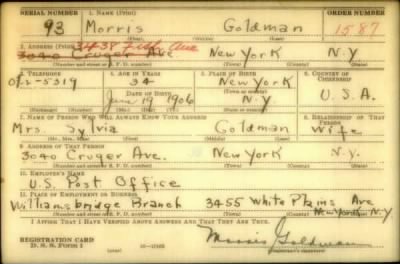 SERIAL NUMBER 1. NAME (Print) ORDER NUMBER
93 Morris Goldman 1587
2. ADDRESS (Print) 3438 Ave
3040 Cruger Ave New York N.Y
(Number and street or R. F. D. number) (Town) (County) (State)
3. TELEPHONE 4. AGE IN YEARS 5. PLACE OF BIRTH 6. COUNTRY OF CITIZENSHIP
34 New York
5319 DATE OF BIRTH N.Y U.S.A.
June 19 1906
(Mo.) (Day) (Yr.) (State or country)
7. NAME OF PERSON WHO WILL ALWAYS KNOW YOUR ADDRESS 8. RELATIONSHIP OF THAT PERSON
Mrs. Sylvia Goldman Wife
(Mr., Mrs., Miss) (First) (Middle) (Last)
9. ADDRESS OF THAT PERSON
3040 Cruger Ave. New York N.Y.
(Number and street or R. F. D. number) (Town) (County) (State)
10. EMPLOYER'S NAME
U.S. Post Office
11. PLACE OF EMPLOYMENT OR BUSINESS
Williamsbridge Branch 3455 White Plains Ave
New York N.Y
(Number and street or R. F. D. number) (Town) (County) (State)
I AFFIRM THAT I HAVE VERIFIED ABOVE ANSWERS AND THAT THEY ARE TRUE.
REGISTRATION CARD
D. S. S. Form 1 Morris Goldman
(Registrant's signature)